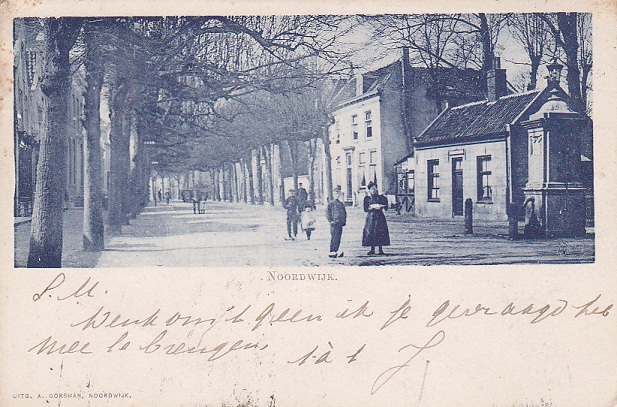 NOORDWIJK.
S. M.
Denk om 't geen ik je gevraagd heb
mee te brengen. t à t J
UITG. A. DORSMAN, NOORDWIJK.